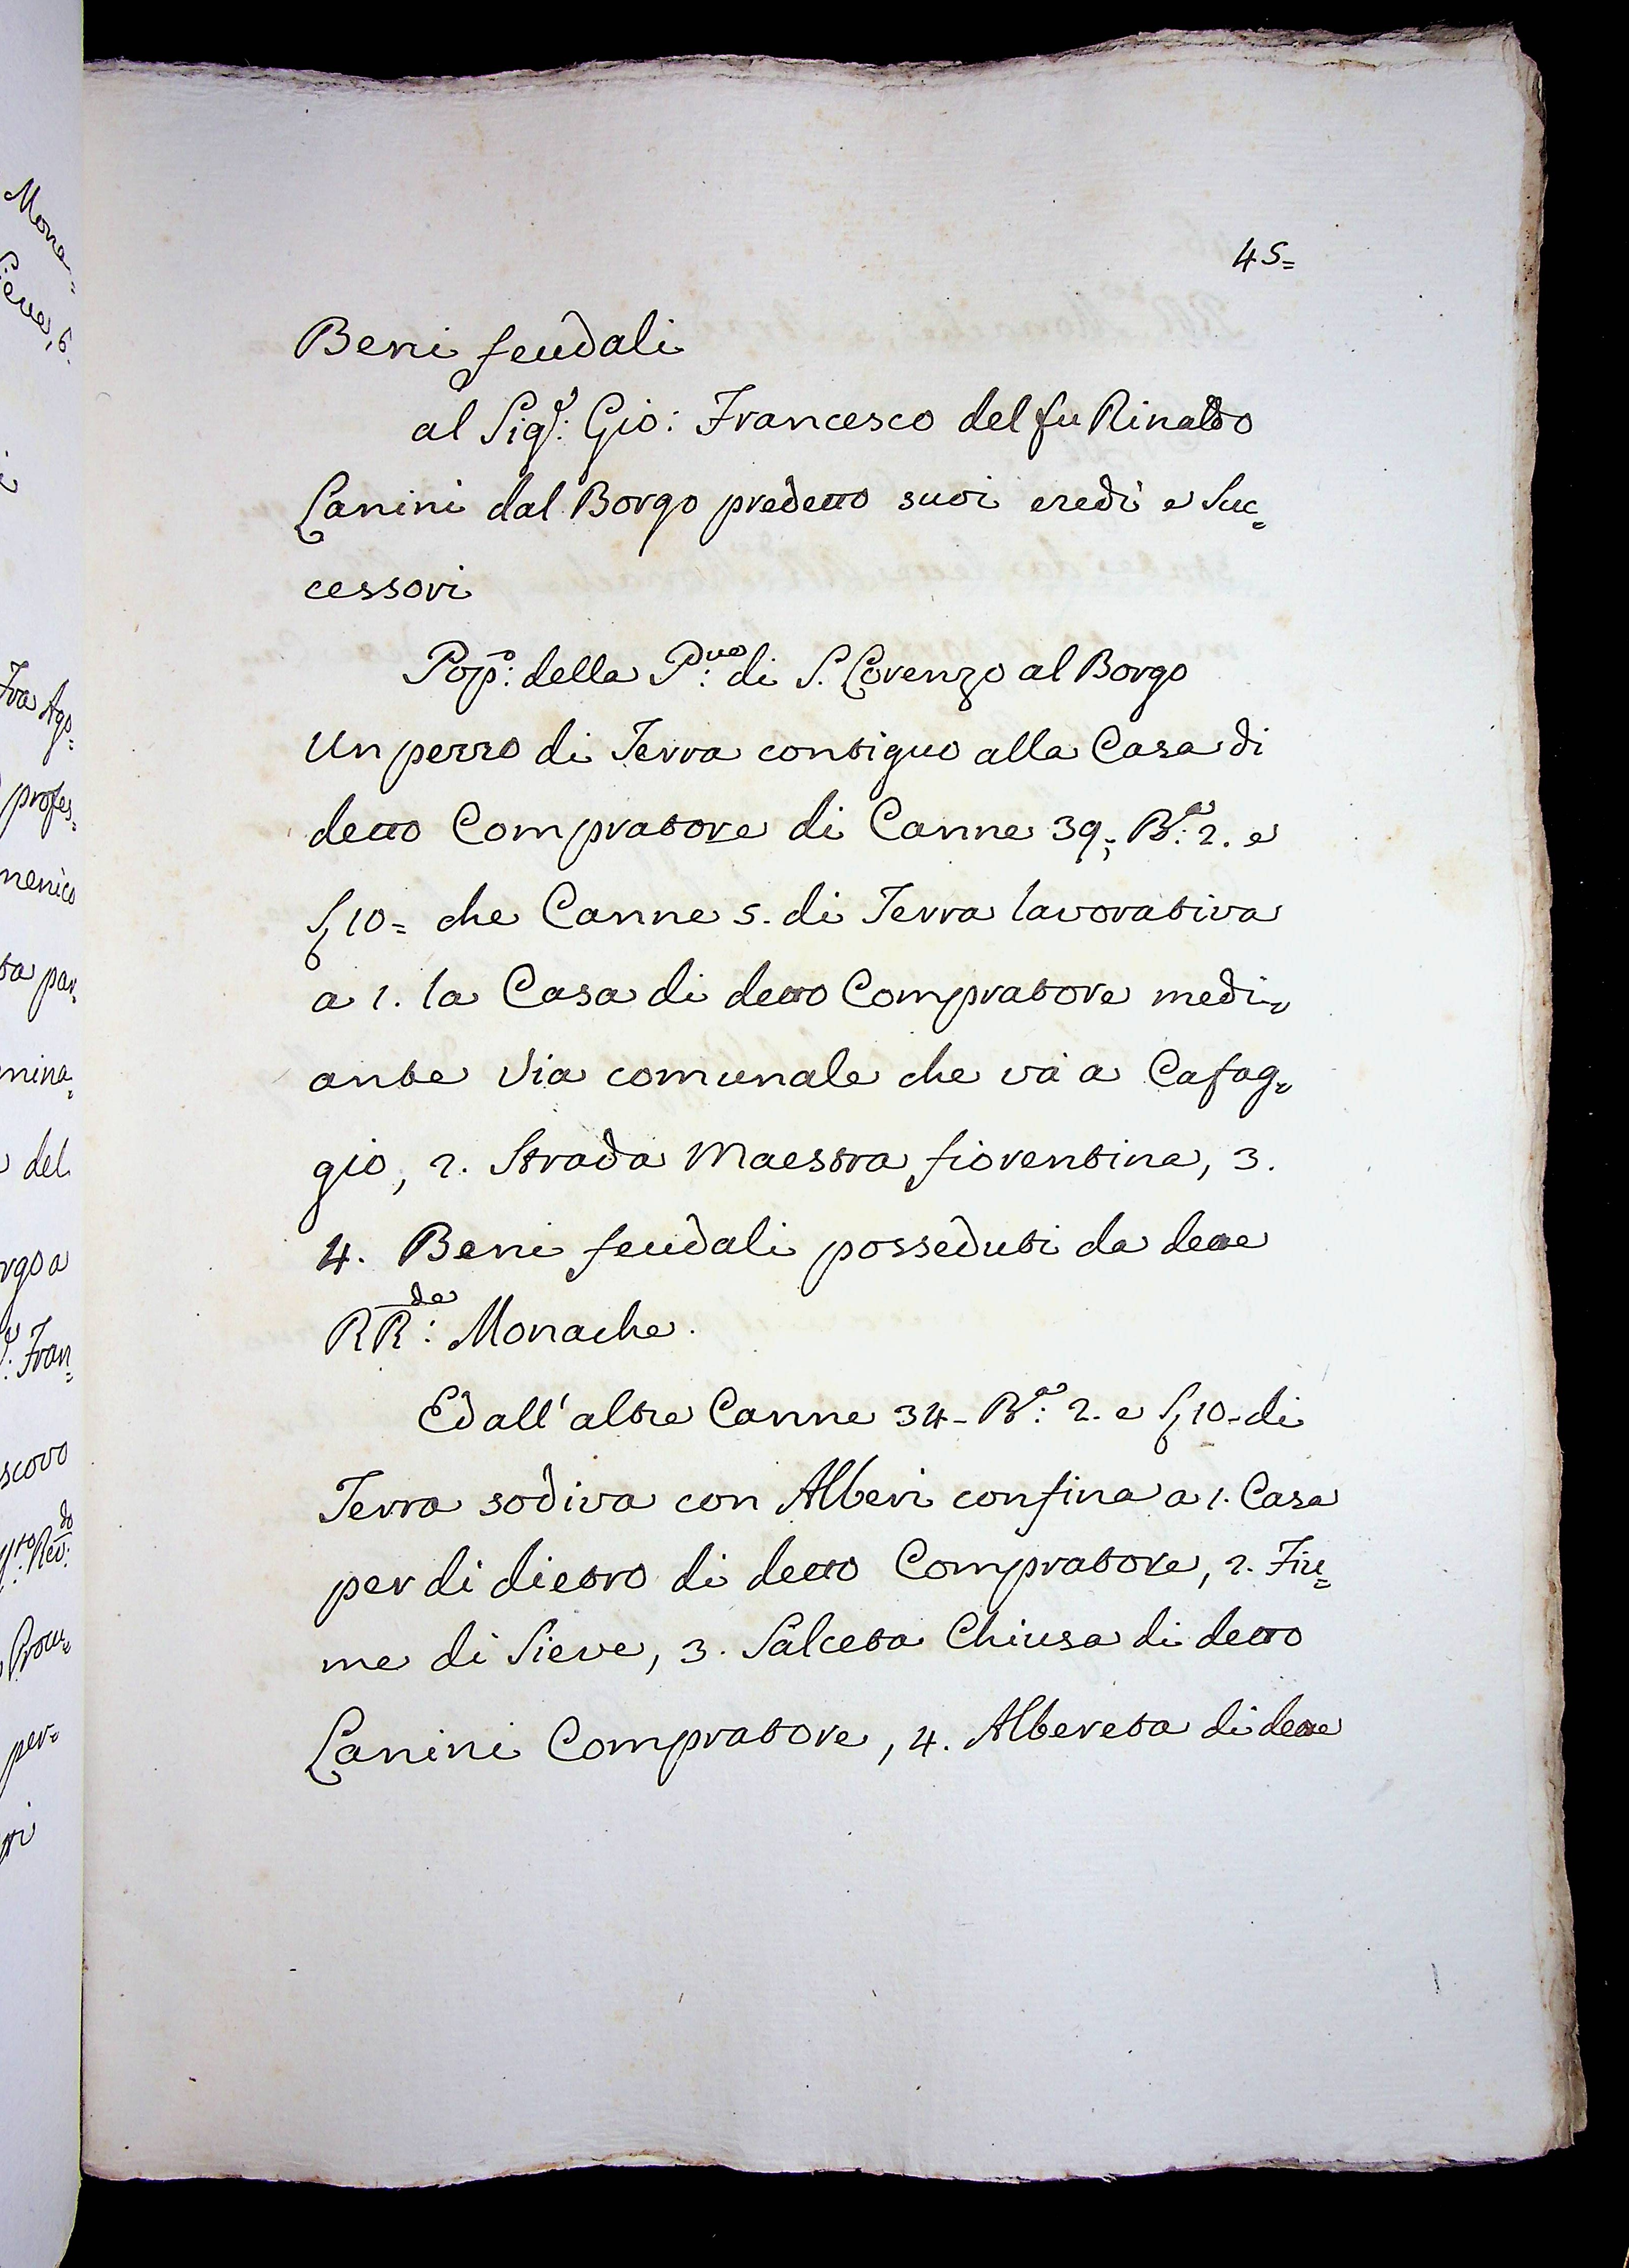 45=
Beni feudali
al Sig.r: Gio: Francesco del fu Rinaldo
Lanini dal Borgo predetto suoi eredi e Suc=
cessori
Pop.o: della P.ve: di S. Lorenzo al Borgo
Un pezzo di Terra contiguo alla Casa di
detto Compratore di Canne 39; B.a: 2. e
S, 10= che Canne 5. di Terra lavorativa
a 1. la Casa di detto Compratore medi=
ante Via comunale che và a Cafag=
gio, 2. Strada Maestra fiorentina, 3.
4. Beni feudali posseduti da dette
RR.de: Monache.
Ed all' altre Canne 34- B.a: 2. e S, 10- di
Terra sodiva con Alberi confina a 1. Casa
per di dietro di detto Compratore, 2. Fiu=
me di Sieve, 3. Salceta Chiusa di detto
Lanini Compratore, 4. Albereta di dette
Mona=
Sieve, 6.
Fra Ago=
profes=
menico
ta par=
mina=
del
rgo a
: Fran=
scovo
Rev.do:
Procu=
per=